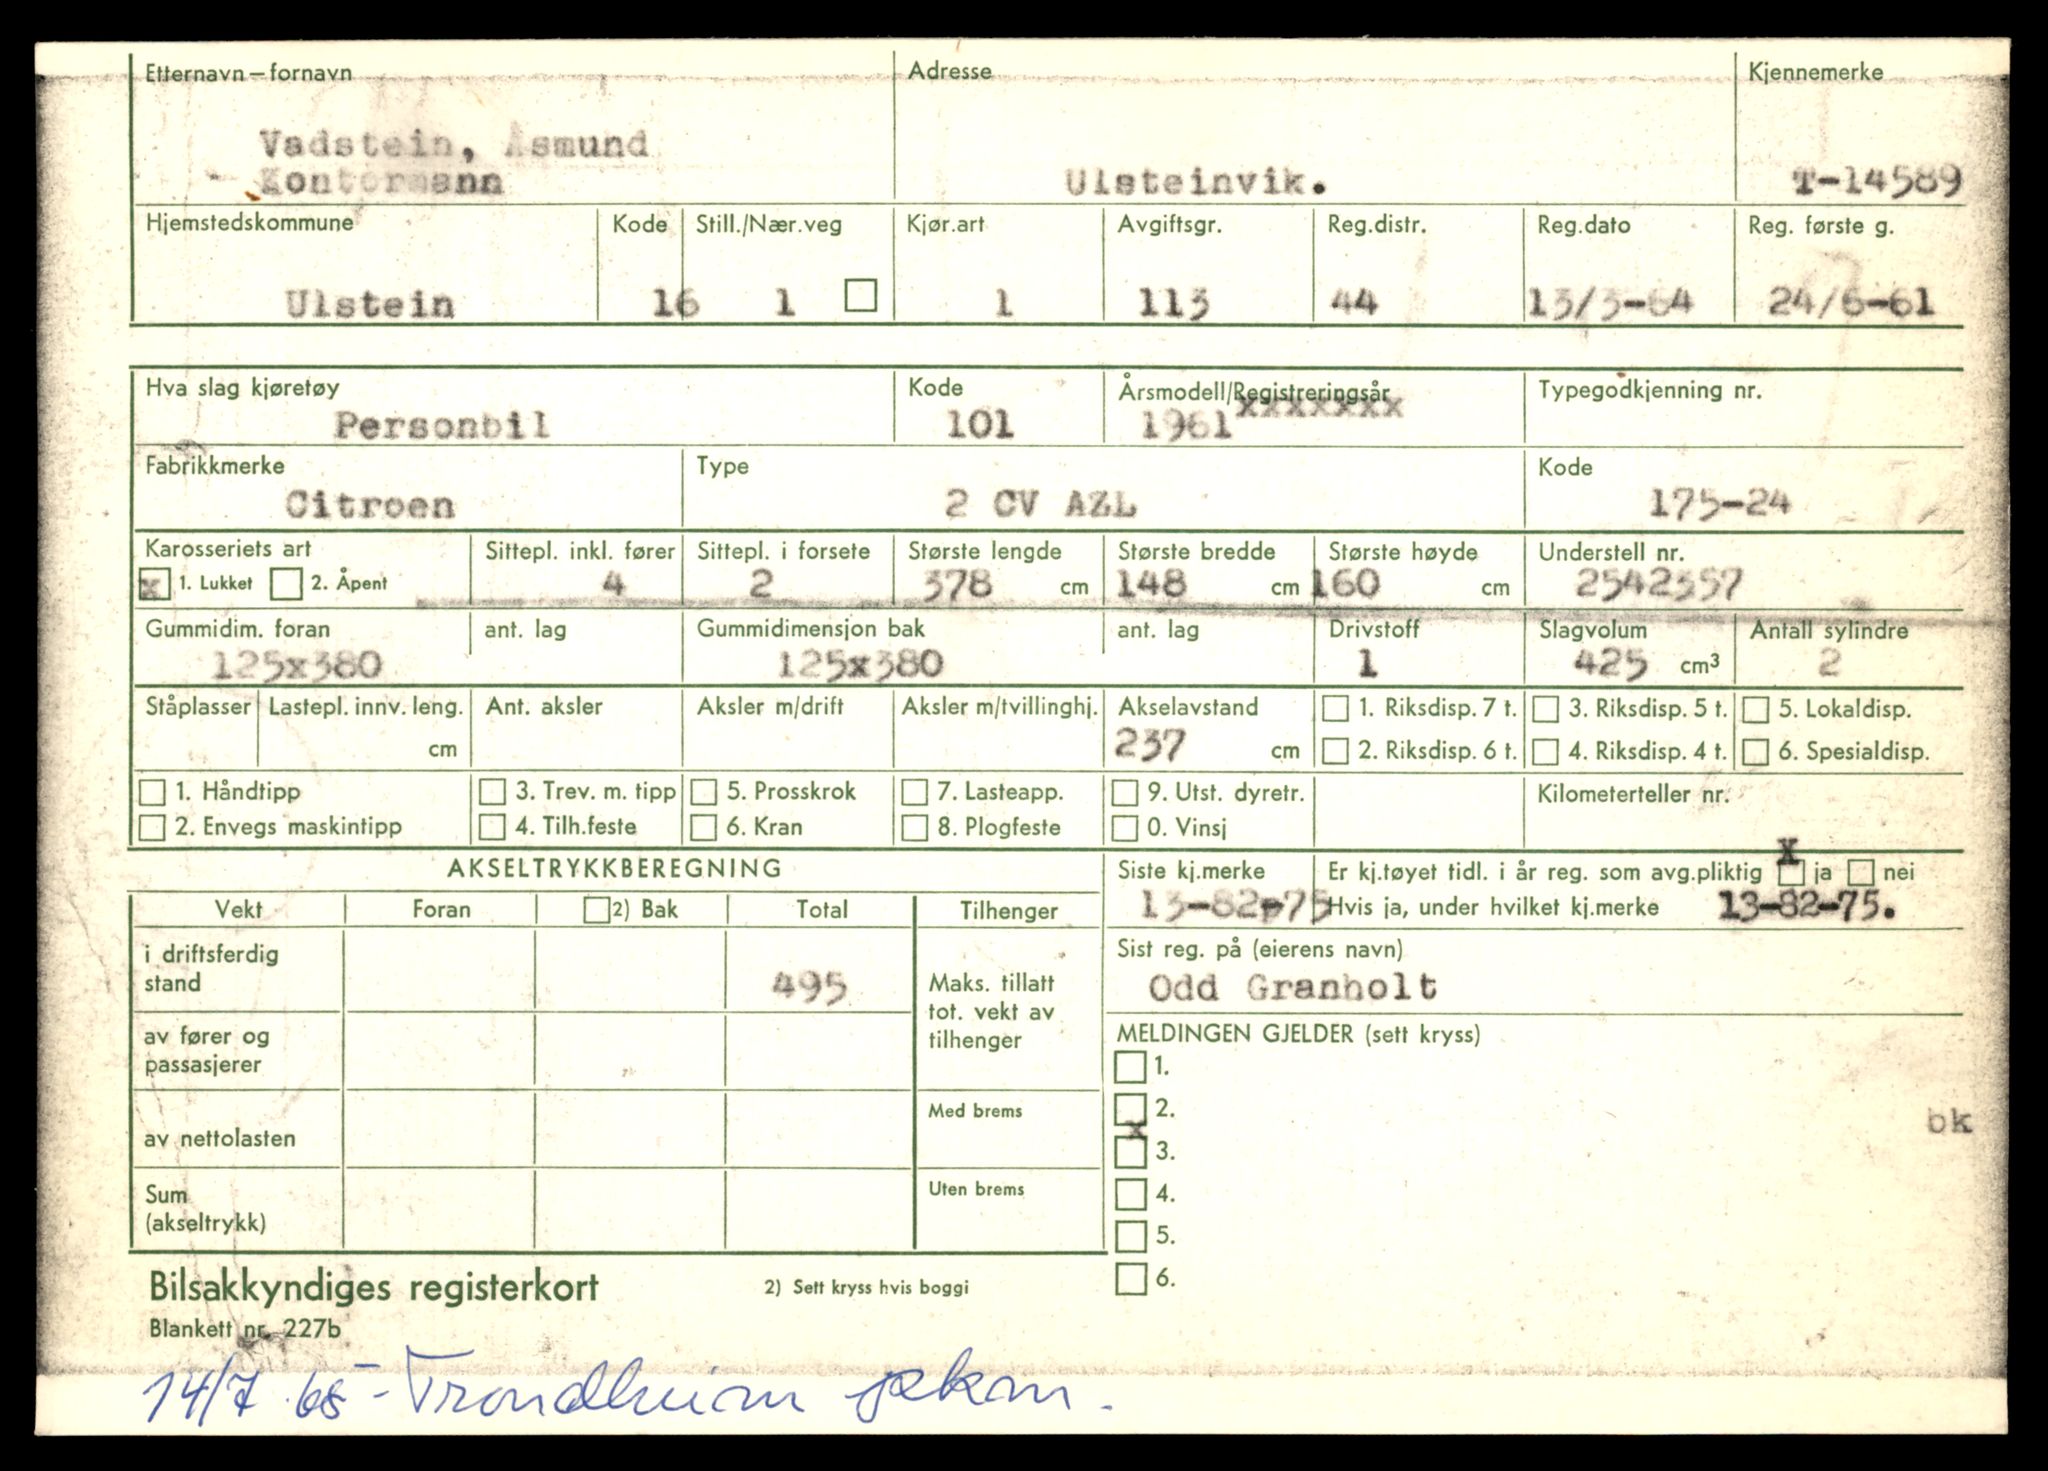 Etternavn – fornavn Adresse Kjennemerke
Vadstein, Åsmund
Kontormann Ulsteinvik. T-14589
Hjemstedskommune Kode Still./Nær.veg Kjør.art Avgiftsgr. Reg.distr. Reg.dato Reg. første g.
Ulstein 16 1 1 113 44 13/3-64 24/6-61
Hva slag kjøretøy Kode Årsmodell/Registreringsår Typegodkjenning nr.
Personbil 101 1961 xxxxxxx
Fabrikkmerke Type Kode
Citroen 2 CV AZL 175-24
Karosseriets art Sittepl. inkl. fører Sittepl. i forsete Største lengde Største bredde Største høyde Understell nr.
x 1. Lukket 2. Åpent 4 2 378 cm 148 cm 160 cm 2542357
Gummidim. foran ant. lag Gummidimensjon bak ant. lag Drivstoff Slagvolum Antall sylindre
125x380 125x380 1 425 cm³ 2
Ståplasser Lastepl. innv. leng. Ant. aksler Aksler m/drift Aksler m/tvillinghj. Akselavstand 1. Riksdisp. 7 t. 3. Riksdisp. 5 t. 5. Lokaldisp.
cm 237 cm 2. Riksdisp. 6 t. 4. Riksdisp. 4 t. 6. Spesialdisp.
1. Håndtipp 3. Trev. m. tipp 5. Prosskrok 7. Lasteapp. 9. Utst. dyretr. Kilometerteller nr.
2. Envegs maskintipp 4. Tilh.feste 6. Kran 8. Plogfeste 0. Vinsj
AKSELTRYKKBEREGNING Siste kj.merke Er kj.tøyet tidl. i år reg. som avg.pliktig x ja nei
Vekt Foran 2) Bak Total Tilhenger 13-82-75 Hvis ja, under hvilket kj.merke 13-82-75.
i driftsferdig stand 495 Maks. tillatt tot. vekt av tilhenger Sist reg. på (eierens navn)
Odd Granholt
av fører og passasjerer MELDINGEN GJELDER (sett kryss)
1.
av nettolasten Med brems 2.
bk
x 3.
Sum (akseltrykk) Uten brems 4.
5.
Bilsakkyndiges registerkort 2) Sett kryss hvis boggi 6.
Blankett nr. 227b
14/7 65 - Trondheim